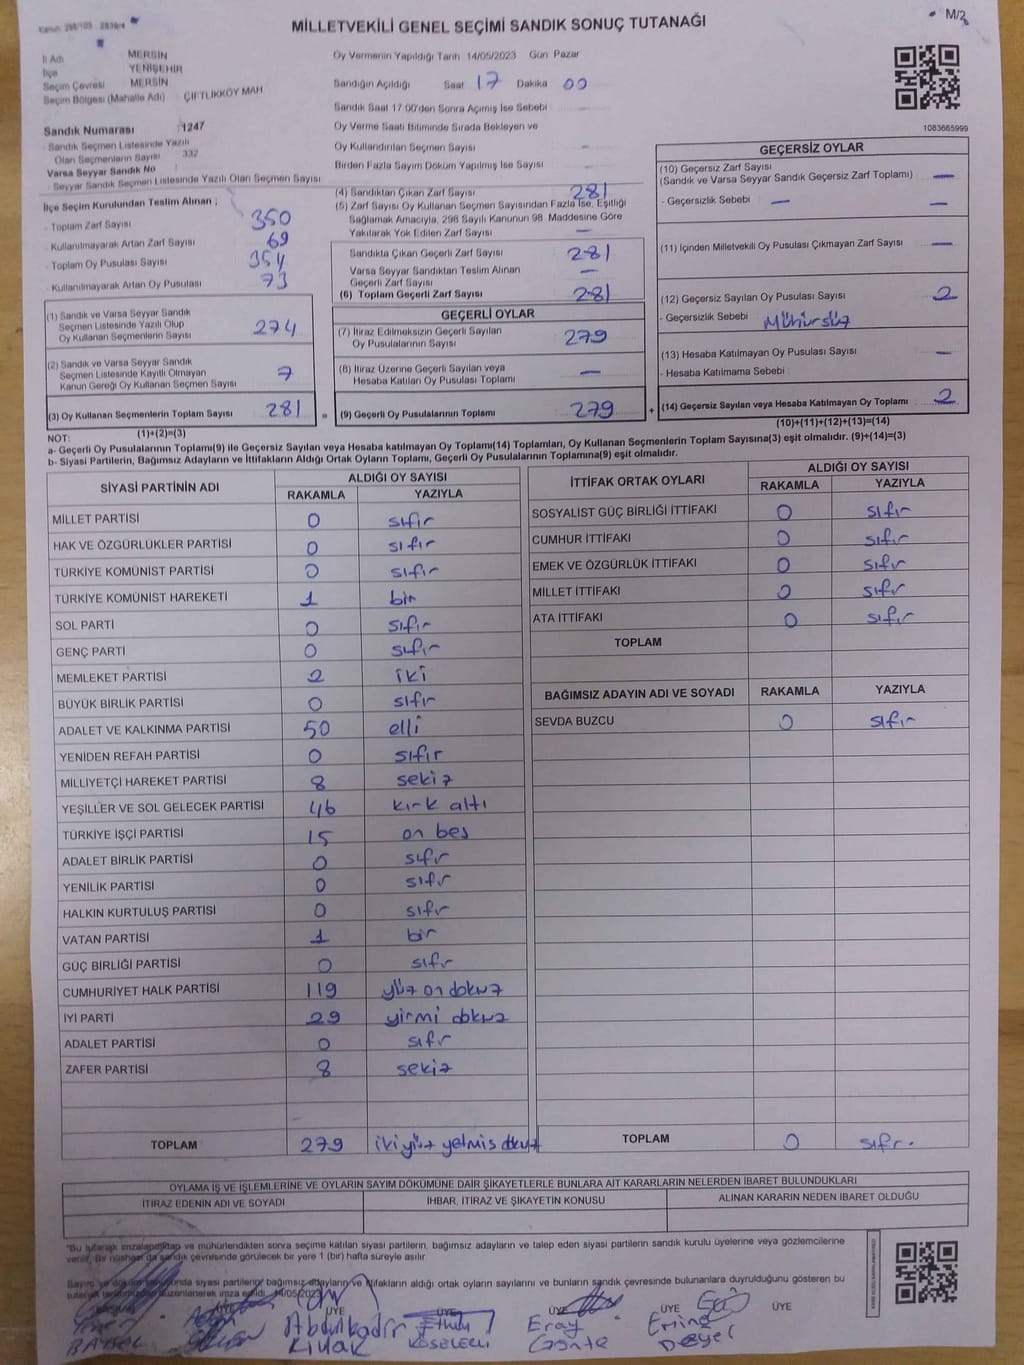 MİLLETVEKİLİ GENEL SEÇİMİ SANDIK SONUÇ TUTANAĞI
M/2
İl Adı MERSİN
İlçe YENİŞEHİR
Seçim Çevresi MERSİN
Seçim Bölgesi (Mahalle Adı) ÇİFTLİKKÖY MAH
Sandık Numarası : 1247
Sandık Seçmen Listesinde Yazılı
Olan Seçmenlerin Sayısı : 332
Varsa Seyyar Sandık No
Seyyar Sandık Seçmen Listesinde Yazılı Olan Seçmen Sayısı
Oy Vermenin Yapıldığı Tarih 14/05/2023 Gün Pazar
Sandığın Açıldığı Saat 17 Dakika 00
Sandık Saat 17 00'den Sonra Açımış İse Sebebi
Oy Verme Saati Bitiminde Sırada Bekleyen ve
Oy Kullandırılan Seçmen Sayısı –
Birden Fazla Sayım Döküm Yapılmış İse Sayısı –
1083665999
İlçe Seçim Kurulundan Teslim Alınan ;
- Toplam Zarf Sayısı 350
- Kullanılmayarak Artan Zarf Sayısı 69
- Toplam Oy Pusulası Sayısı 354
- Kullanılmayarak Artan Oy Pusulası 73
(1) Sandık ve Varsa Seyyar Sandık
Seçmen Listesinde Yazılı Olup
Oy Kullanan Seçmenlerin Sayısı 274
(2) Sandık ve Varsa Seyyar Sandık
Seçmen Listesinde Kayıtlı Olmayan
Kanun Gereği Oy Kullanan Seçmen Sayısı 7
(3) Oy Kullanan Seçmenlerin Toplam Sayısı 281
(1)+(2)=(3)
(4) Sandıktan Çıkan Zarf Sayısı 281
(5) Zarf Sayısı Oy Kullanan Seçmen Sayısından Fazla İse, Eşitliği
Sağlamak Amacıyla, 298 Sayılı Kanunun 98. Maddesine Göre
Yakılarak Yok Edilen Zarf Sayısı –
Sandıkta Çıkan Geçerli Zarf Sayısı 281
Varsa Seyyar Sandıktan Teslim Alınan
Geçerli Zarf Sayısı –
(6) Toplam Geçerli Zarf Sayısı 281
GEÇERLİ OYLAR
(7) İtiraz Edilmeksizin Geçerli Sayılan
Oy Pusulalarının Sayısı 279
(8) İtiraz Üzerine Geçerli Sayılan veya
Hesaba Katılan Oy Pusulası Toplamı –
= (9) Geçerli Oy Pusulalarının Toplamı 279 +
GEÇERSİZ OYLAR
(10) Geçersiz Zarf Sayısı
(Sandık ve Varsa Seyyar Sandık Geçersiz Zarf Toplamı) –
- Geçersizlik Sebebi – –
(11) İçinden Milletvekili Oy Pusulası Çıkmayan Zarf Sayısı –
(12) Geçersiz Sayılan Oy Pusulası Sayısı 2
- Geçersizlik Sebebi Mühürsüz
(13) Hesaba Katılmayan Oy Pusulası Sayısı –
- Hesaba Katılmama Sebebi :
(14) Geçersiz Sayılan veya Hesaba Katılmayan Oy Toplamı 2
(10)+(11)+(12)+(13)=(14)
NOT:
a- Geçerli Oy Pusulalarının Toplamı(9) ile Geçersiz Sayılan veya Hesaba katılmayan Oy Toplamı(14) Toplamları, Oy Kullanan Seçmenlerin Toplam Sayısına(3) eşit olmalıdır. (9)+(14)=(3)
b- Siyasi Partilerin, Bağımsız Adayların ve İttifakların Aldığı Ortak Oyların Toplamı, Geçerli Oy Pusulalarının Toplamına(9) eşit olmalıdır.
SİYASİ PARTİNİN ADI ALDIĞI OY SAYISI
RAKAMLA YAZIYLA
MİLLET PARTİSİ 0 sıfır
HAK VE ÖZGÜRLÜKLER PARTİSİ 0 sıfır
TÜRKİYE KOMÜNİST PARTİSİ 0 sıfır
TÜRKİYE KOMÜNİST HAREKETİ 1 bir
SOL PARTİ 0 sıfır
GENÇ PARTİ 0 sıfır
MEMLEKET PARTİSİ 2 iki
BÜYÜK BİRLİK PARTİSİ 0 sıfır
ADALET VE KALKINMA PARTİSİ 50 elli
YENİDEN REFAH PARTİSİ 0 sıfır
MİLLİYETÇİ HAREKET PARTİSİ 8 sekiz
YEŞİLLER VE SOL GELECEK PARTİSİ 46 kırk altı
TÜRKİYE İŞÇİ PARTİSİ 15 on beş
ADALET BİRLİK PARTİSİ 0 sıfır
YENİLİK PARTİSİ 0 sıfır
HALKIN KURTULUŞ PARTİSİ 0 sıfır
VATAN PARTİSİ 1 bir
GÜÇ BİRLİĞİ PARTİSİ 0 sıfır
CUMHURİYET HALK PARTİSİ 119 yüz on dokuz
İYİ PARTİ 29 yirmi dokuz
ADALET PARTİSİ 0 sıfır
ZAFER PARTİSİ 8 sekiz
TOPLAM 279 iki yüz yetmiş dokuz
İTTİFAK ORTAK OYLARI ALDIĞI OY SAYISI
RAKAMLA YAZIYLA
SOSYALİST GÜÇ BİRLİĞİ İTTİFAKI 0 sıfır
CUMHUR İTTİFAKI 0 sıfır
EMEK VE ÖZGÜRLÜK İTTİFAKI 0 sıfır
MİLLET İTTİFAKI 0 sıfır
ATA İTTİFAKI 0 sıfır
TOPLAM
BAĞIMSIZ ADAYIN ADI VE SOYADI RAKAMLA YAZIYLA
SEVDA BUZCU 0 sıfır
TOPLAM 0 sıfır.
OYLAMA İŞ VE İŞLEMLERİNE VE OYLARIN SAYIM DÖKÜMÜNE DAİR ŞİKAYETLERLE BUNLARA AİT KARARLARIN NELERDEN İBARET BULUNDUKLARI
İTİRAZ EDENİN ADI VE SOYADI İHBAR, İTİRAZ VE ŞİKAYETİN KONUSU ALINAN KARARIN NEDEN İBARET OLDUĞU
"Bu tutanak imzalanıp ve mühürlendikten sonra seçime katılan siyasi partilerin, bağımsız adayların ve talep eden siyasi partilerin sandık kurulu üyelerine veya gözlemcilerine
verilir. Bir nüshası da sandık çevresinde görülecek bir yere 1 (bir) hafta süreyle asılır.
siyasi partilerin, bağımsız adayların ve ittifakların aldığı ortak oyların sayılarını ve bunların sandık çevresinde bulunanlara duyrulduğunu gösteren bu
düzenlenerek imza edildi. 14/05/2023
ÜYE ÜYE ÜYE ÜYE ÜYE ÜYE
Abdulkadir Ethem Eray Emine
KÖSELERLİ